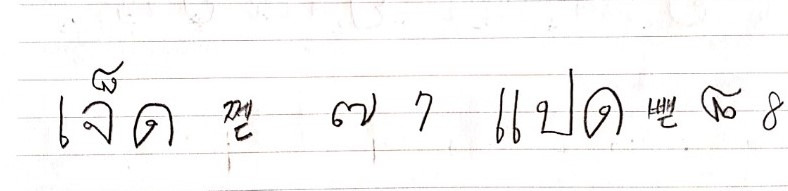 เจ็ด 쩯 ๗ 7 แปด 뺃 ๘ 8